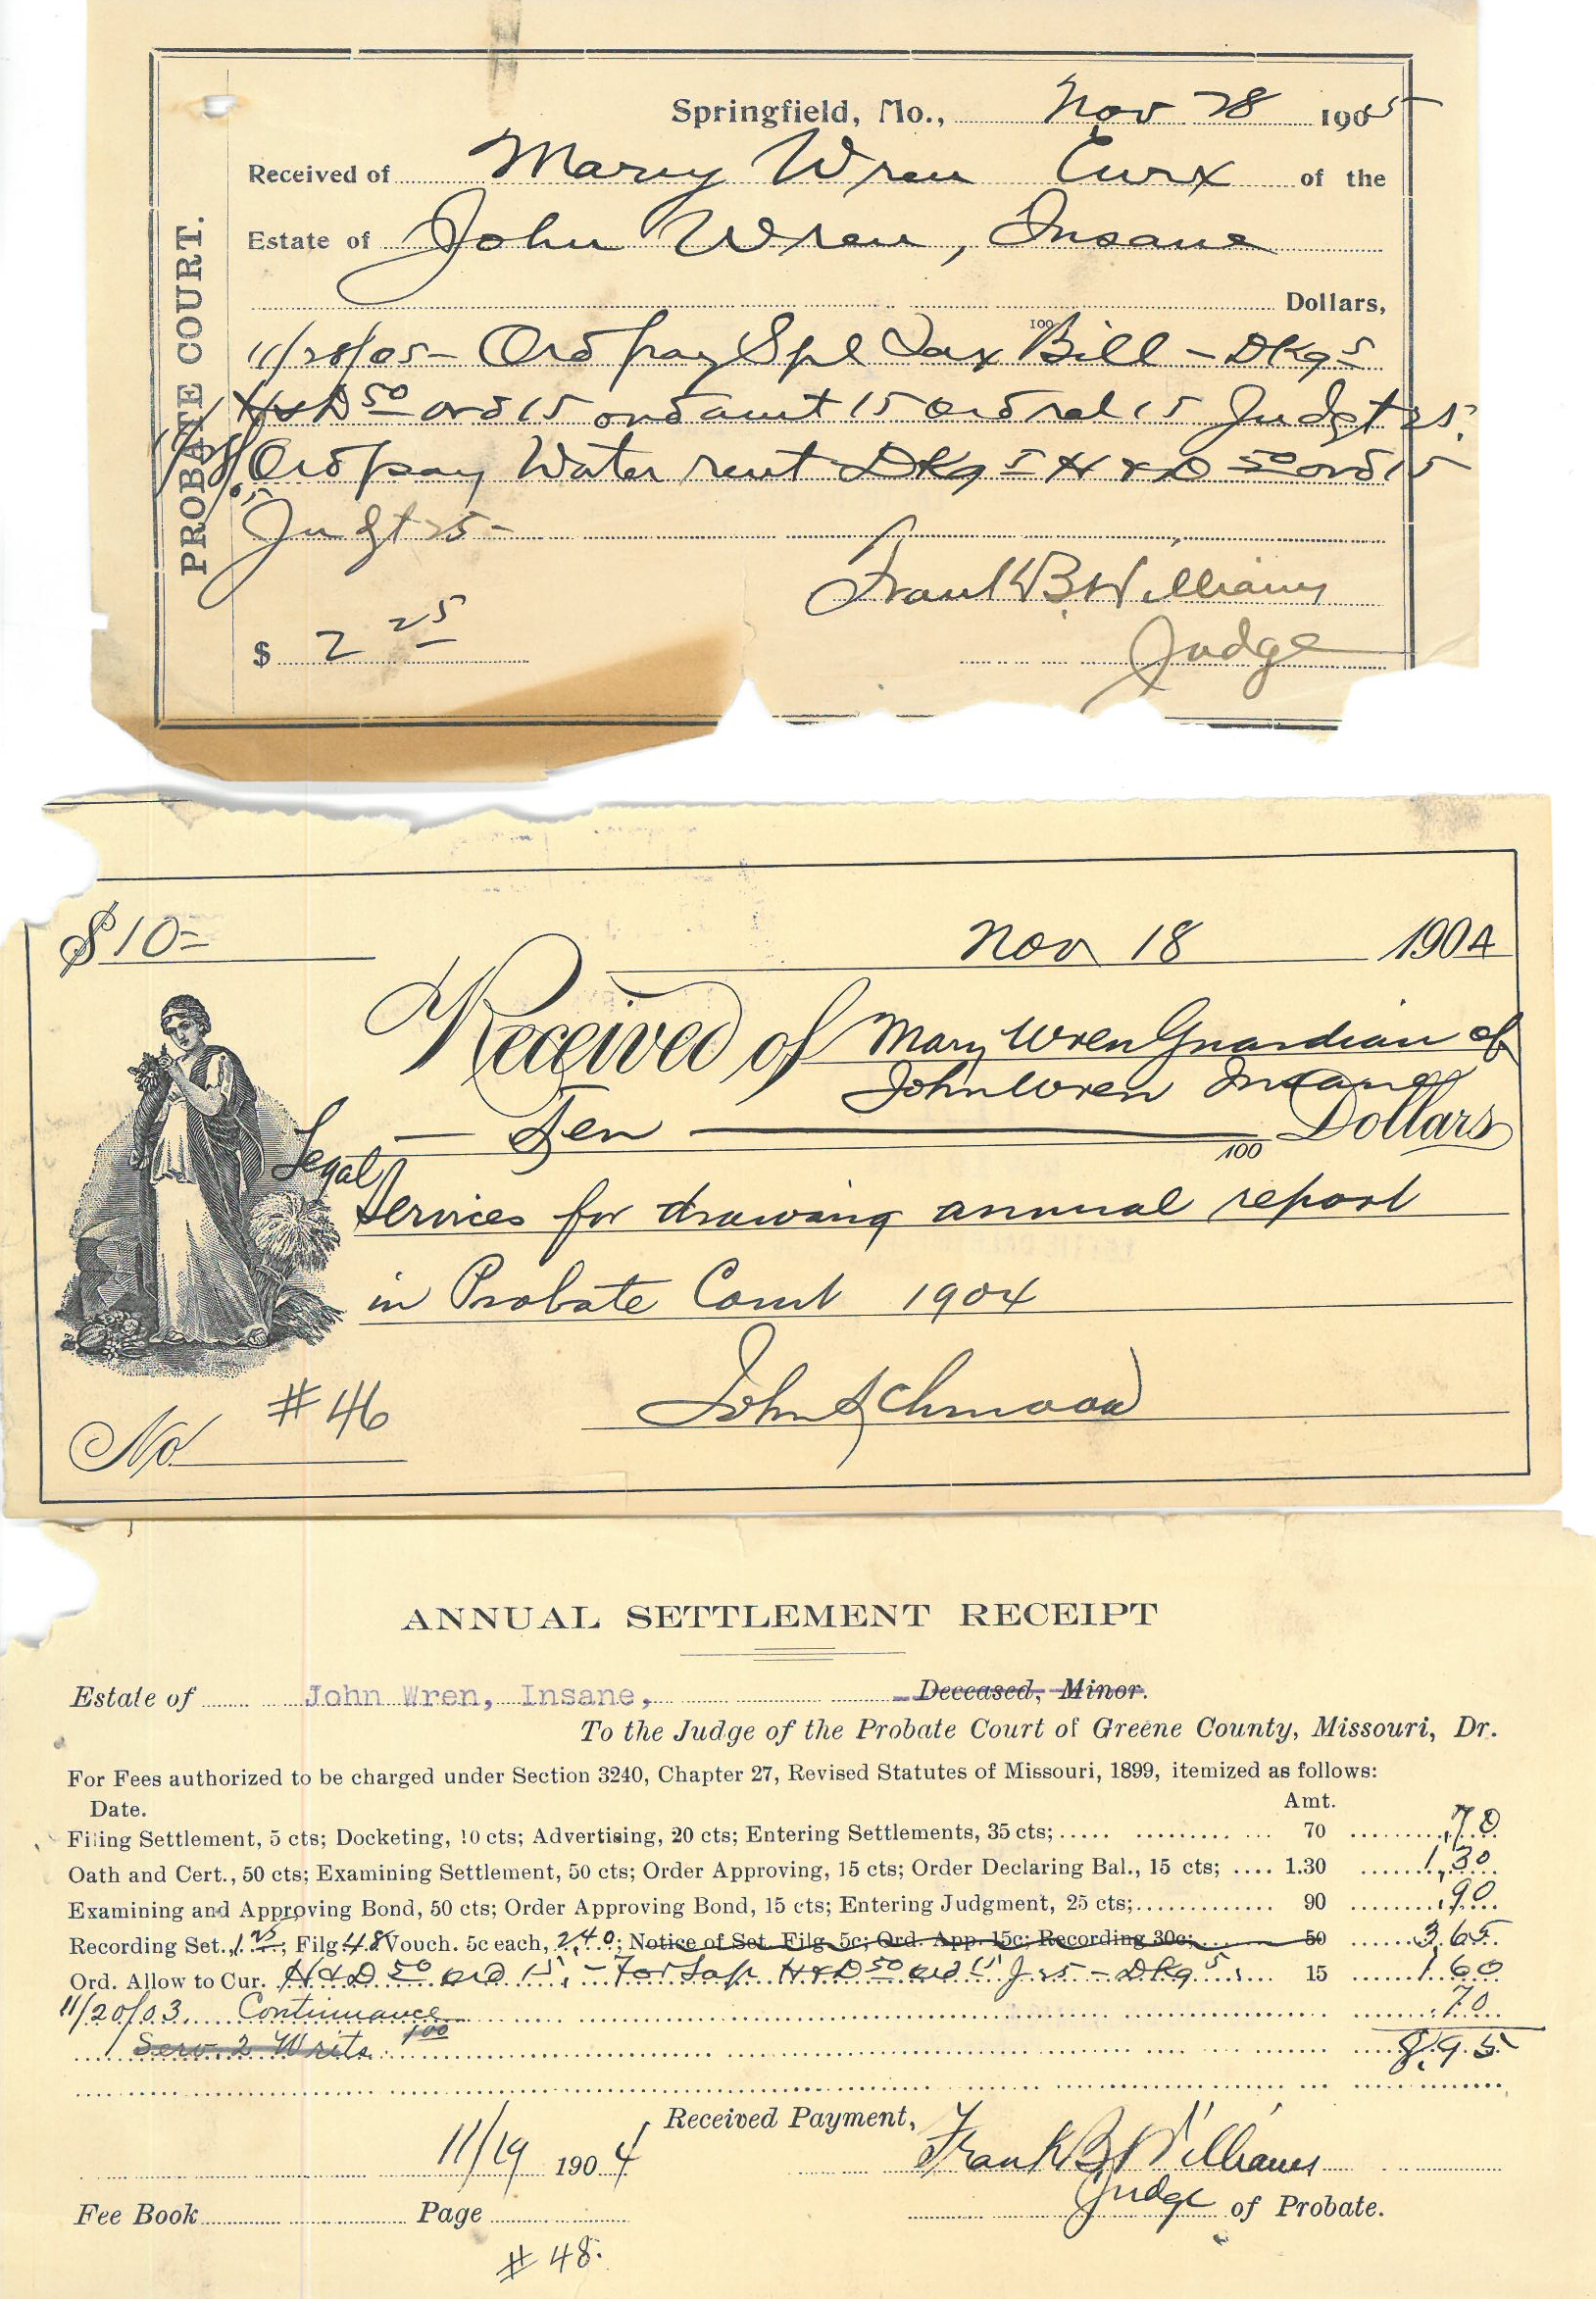 PROBATE COURT.
Springfield, Mo., Nov 28 1905
Received of Mary Wren Curx of the
Estate of John Wren, Insane
Dollars,
100
11/28/05 - Ord pay Spl Tax Bill - DKg 5
H & D 50 ord 15 ord amt 15 Ord rel 15 Judgt 25.
Ord pay Water rent DKg 5 H & D 50 ord 15
Judgt 25 -
Frank B. Williams
$ 2 25
Judge
$10=
Nov 18 1904
Received of Mary Wren Guardian of
John Wren Insane
— Ten — 100 Dollars
Legal
Services for drawing annual report
in Probate Court 1904
John Schmook
No #46
ANNUAL SETTLEMENT RECEIPT
Estate of John Wren, Insane, Deceased, Minor.
To the Judge of the Probate Court of Greene County, Missouri, Dr.
For Fees authorized to be charged under Section 3240, Chapter 27, Revised Statutes of Missouri, 1899, itemized as follows:
Date. Amt.
Filing Settlement, 5 cts; Docketing, 10 cts; Advertising, 20 cts; Entering Settlements, 35 cts; 70 .70
Oath and Cert., 50 cts; Examining Settlement, 50 cts; Order Approving, 15 cts; Order Declaring Bal., 15 cts; 1.30 1.30
Examining and Approving Bond, 50 cts; Order Approving Bond, 15 cts; Entering Judgment, 25 cts; 90 .90
Recording Set. 1 25, Filg 48 Vouch. 5c each, 2.40; Notice of Set. Filg. 5c; Ord. App. 15c; Recording 30c; 50 3.65
Ord. Allow to Cur. H & D 50 ord 15, - For Sap H & D 50 ord 15 J 25 - DKg 5 15 1 60
11/20/03. Continuance .70
Serv. 2 Writs 100 8.95
Received Payment,
11/19 1904 Frank B Williams
Judge of Probate.
Fee Book Page
#48.